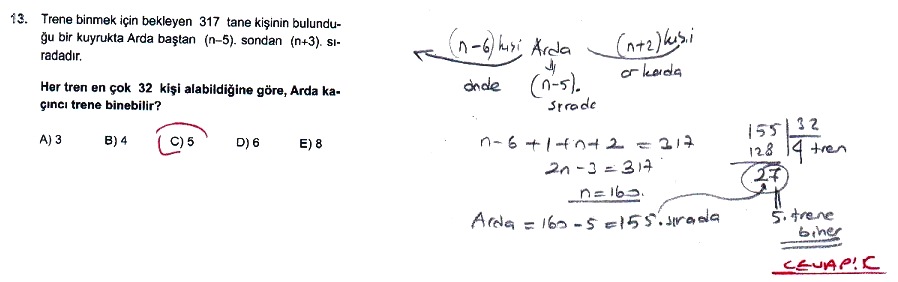 13. Trene binmek için bekleyen 317 tane kişinin bulundu-
ğu bir kuyrukta Arda baştan (n–5). sondan (n+3). sı-
radadır.
Her tren en çok 32 kişi alabildiğine göre, Arda ka-
çıncı trene binebilir?
A) 3 B) 4 C) 5 D) 6 E) 8
(n-6) kişi Arda (n+2) kişi
önde (n-5). arkada
sırada
n-6+1+n+2 = 317
2n-3 = 317
n=160.
Arda = 160-5 = 155. sırada
155 32
128 4 tren
27
5. trene
biner
CEVAP: C